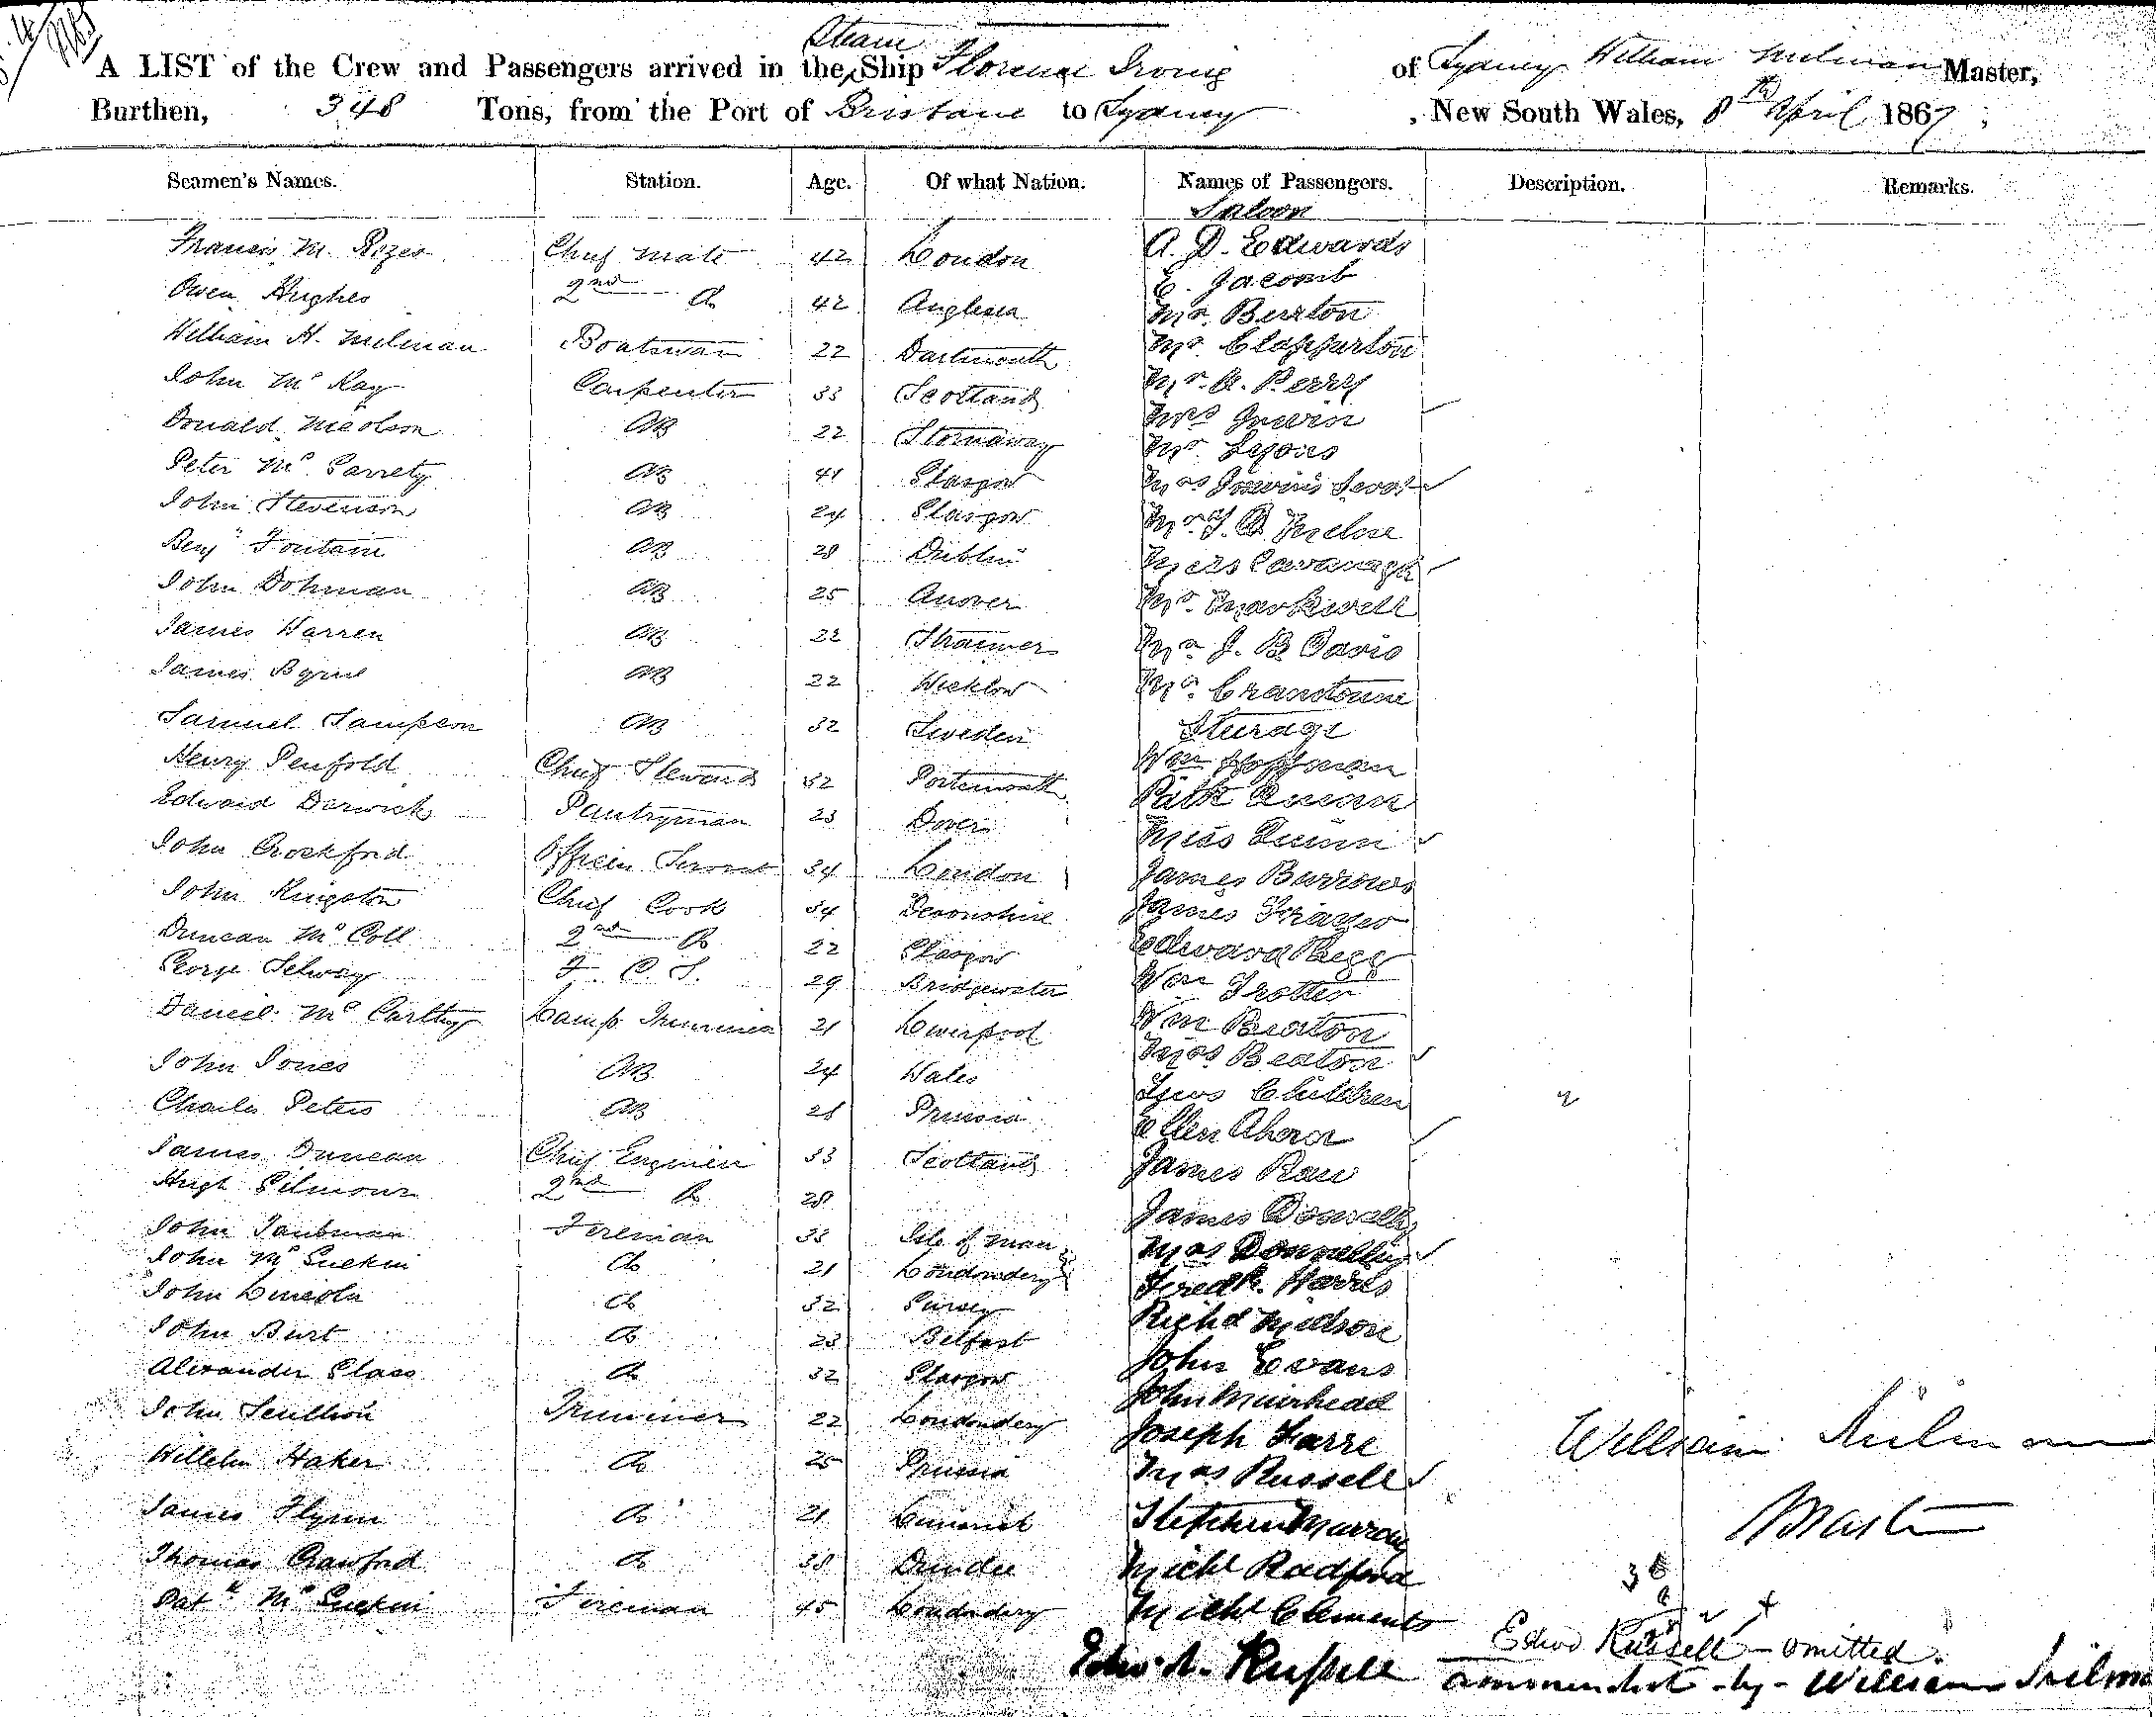 Steam
A LIST of the Crew and Passengers arrived in the Ship Florence Irving of Sydney William Milman Master,
Burthen, 348 Tons, from the Port of Brisbane to Sydney, New South Wales, 8th April 1867;
Seamen's Names. Station. Age. Of what Nation. Names of Passengers. Description. Remarks.
Saloon
Francis M. Chief Mate 42 London A. D. Edwards
Owen Hughes 2nd Do 42 Anglesea E. Jacomb
Mr. Burton
William H. Milman Boatswain 22 Dartmouth Mr. Clapparton
John Mc Kay Carpenter 33 Scotland Mr. A. Perry
Donald Nicolson AB 22 Stornaway Mrs Irwin
Mr. Lyons
Peter Mc Garrety AB 41 Glasgow Mrs Irwin's Servt
John Stevenson AB 24 Glasgow Mr J. D.
Benjn Fontain AB 28 Dublin Miss Cavanagh
John Dohman AB 25 Anover Mr. Markwell
James Warren AB 22 Stranwer Mr J. B. Davis
James Byrne AB 22 Wicklow Mr. Cranstoune
Samuel Sampson AB 32 Sweden Sturage
Henry Penfold Chief Steward 32 Portsmouth Wm Hoffman
Edward Derwick Pantryman 23 Dover Patk Quinn
Miss Quinn
John Crockford Officers Servant 34 London James Burrows
John Kingston Chief Cook 34 Devonshire James Frazer
Duncan Mc Coll 2nd Do 22 Glasgow Edward
George Selway F. C. S. 29 Bridgewater Wm Trotter
Daniel Mc Carthy Lamp Trimmer 21 Liverpool Wm Beaton
Mrs Beaton
John Jones AB 24 Wales Two Children 2
Charles Peters AB 28 Prussia Ellen Ahern
James Duncan Chief Engineer 33 Scotland James Raw
Hugh Gilmour 2nd Do 28 James Donnelly
John Taubman Fireman 33 Isle of Man Mrs Donnelly
John Mc Guckin Do 21 Londonderry Fredk. Harris
John Lincoln Do 32 Richd Midson
John Burt Do 23 Belfast John Evans
Alexander Glass Do 32 Glasgow John Muirhead
John Scullion Trimmer 22 Londonderry Joseph Farre
Willelm Haker Do 25 Prussia Mrs Russell
William Milman
James Flynn Do 21 Limerick Stephen Murray
Master
Thomas Crawford Do 38 Dundee Michl Radford
Patk Mc Guckin Fireman 45 Londonderry Michl Clements
Edwd Russell - omitted.
Edwd. A. Russell ammended - by - William Milma